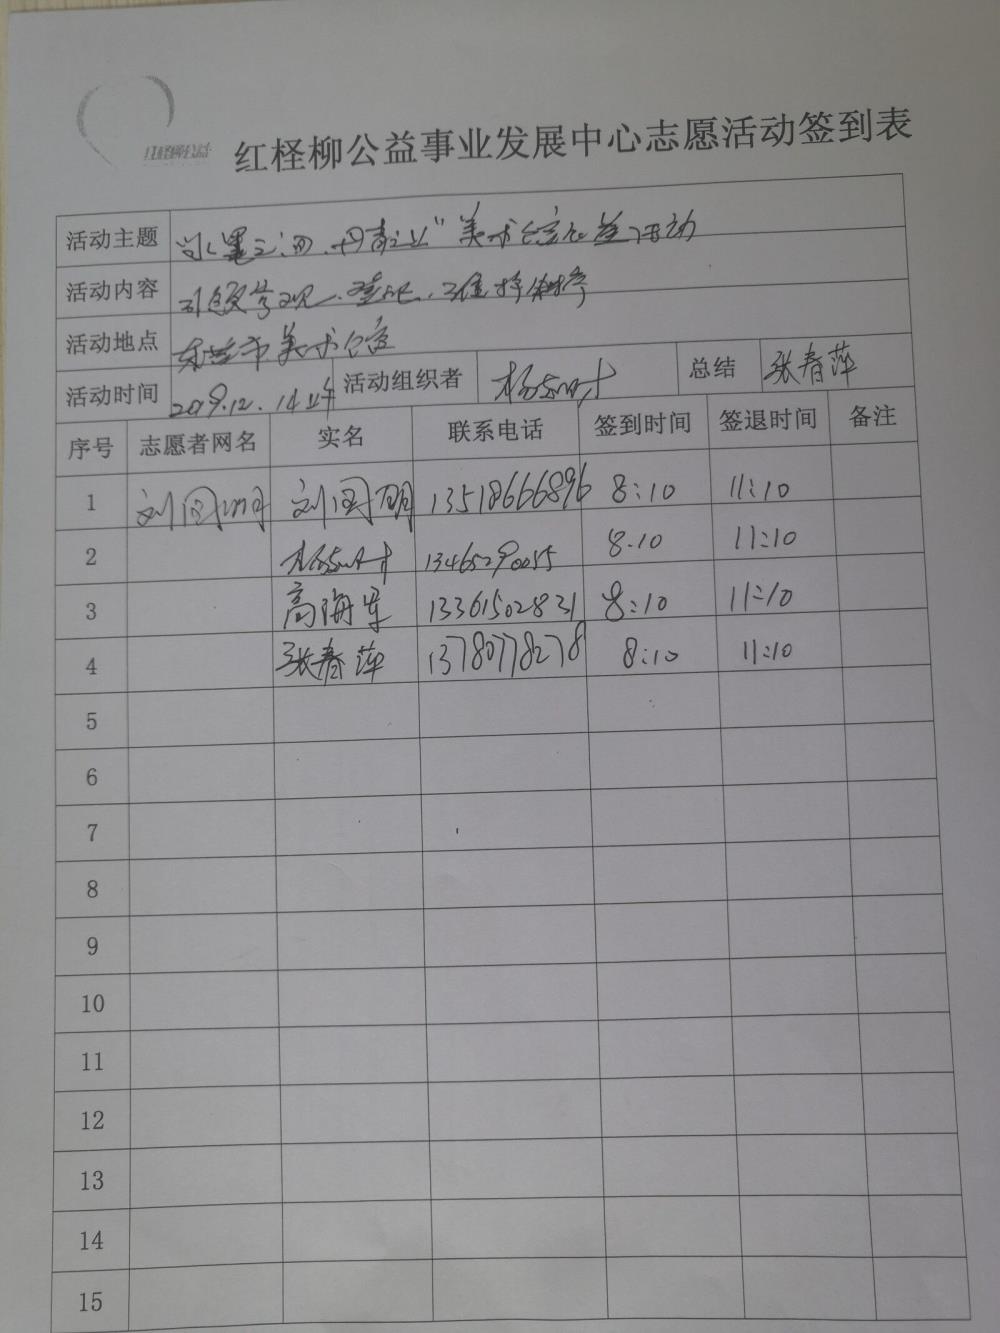 红柽柳公益
红柽柳公益事业发展中心志愿活动签到表
活动主题 美术馆公益活动
活动内容 引领参观、维持秩序
活动地点 东营市美术馆
活动时间 2019.12.14上午 活动组织者 总结 张春萍
序号 志愿者网名 实名 联系电话 签到时间 签退时间 备注
1 刘国明 刘国明 13518666896 8:10 11:10
2 13465290055 8:10 11:10
3 高海军 13361502831 8:10 11:10
4 张春萍 13780778278 8:10 11:10
5
6
7
8
9
10
11
12
13
14
15